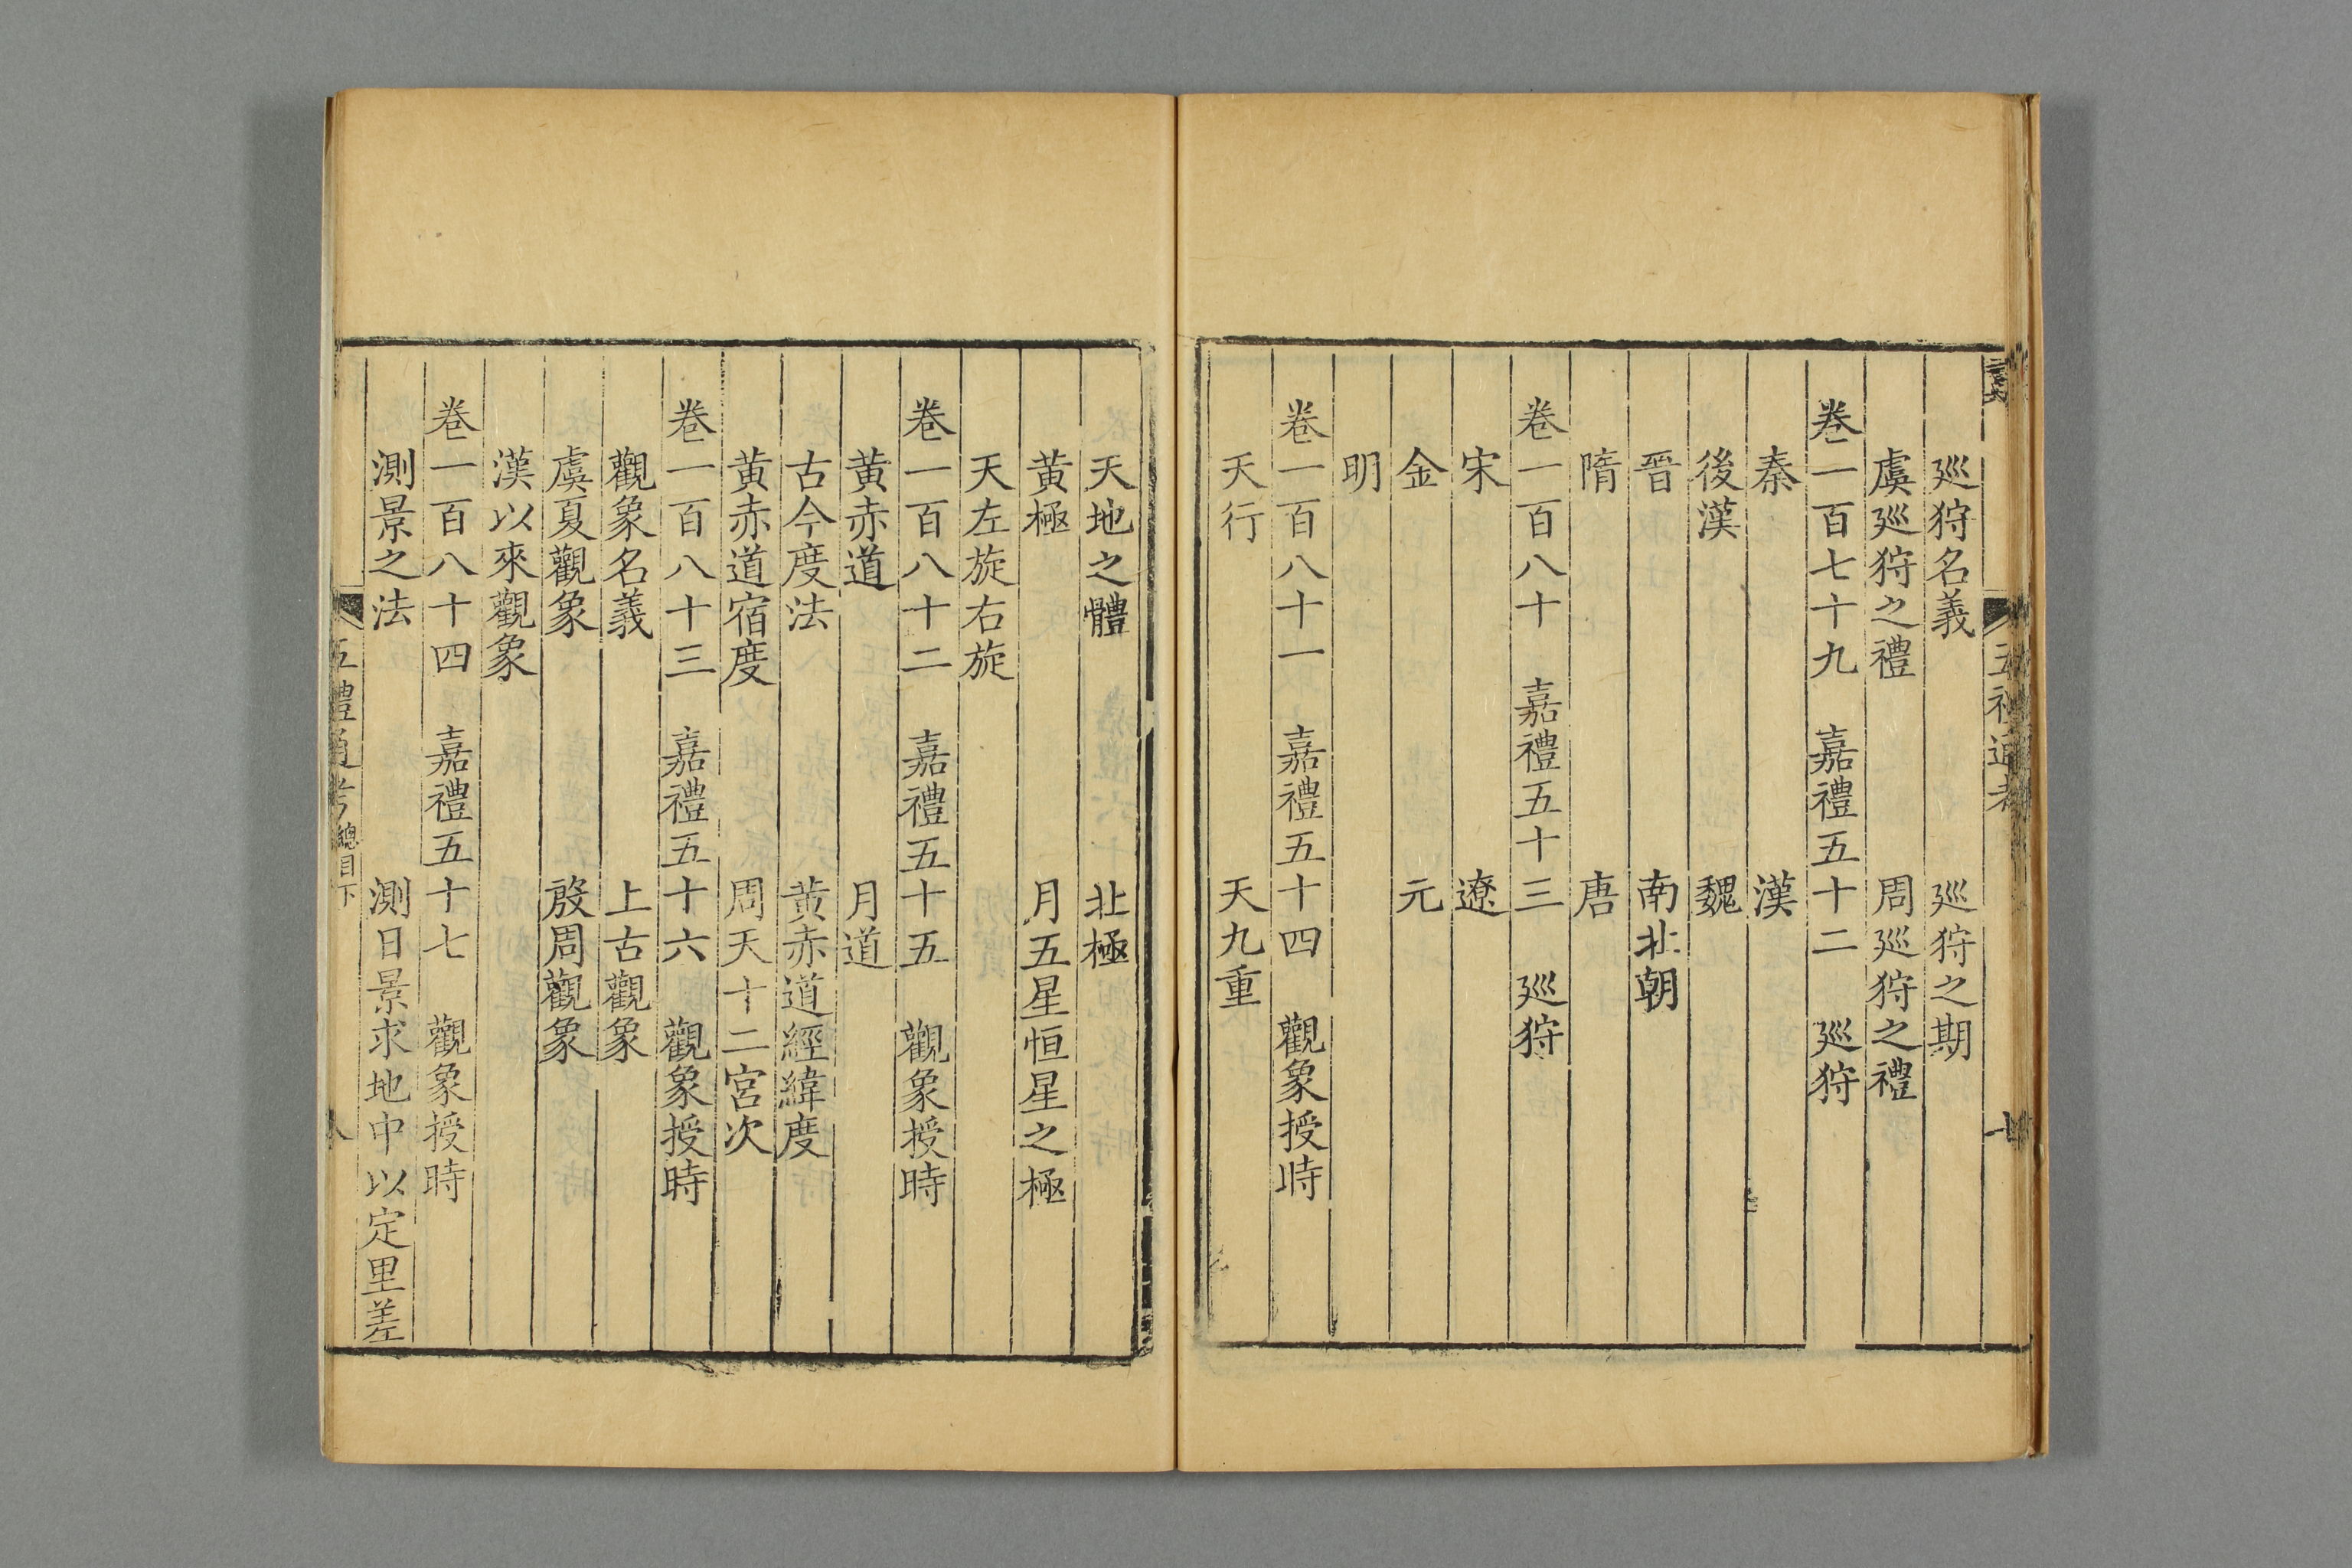 五禮通考
巡狩名義 巡狩之期
虞巡狩之禮 周巡狩之禮
卷一百七十九 嘉禮五十二 巡狩
秦 漢
後漢 魏
晉 南北朝
隋 唐
卷一百八十 嘉禮五十三 巡狩
宋 遼
金 元
明
卷一百八十一 嘉禮五十四 觀象授時
天行 天九重
天地之體 北極
黃極 月五星恒星之極
天左旋右旋
卷一百八十二 嘉禮五十五 觀象授時
黃赤道 月道
古今度法 黃赤道經緯度
黃赤道宿度 周天十二宮次
卷一百八十三 嘉禮五十六 觀象授時
觀象名義 上古觀象
虞夏觀象 殷周觀象
漢以來觀象
卷一百八十四 嘉禮五十七 觀象授時
測景之法 測日景求地中以定里差
五禮通考 總目下 八